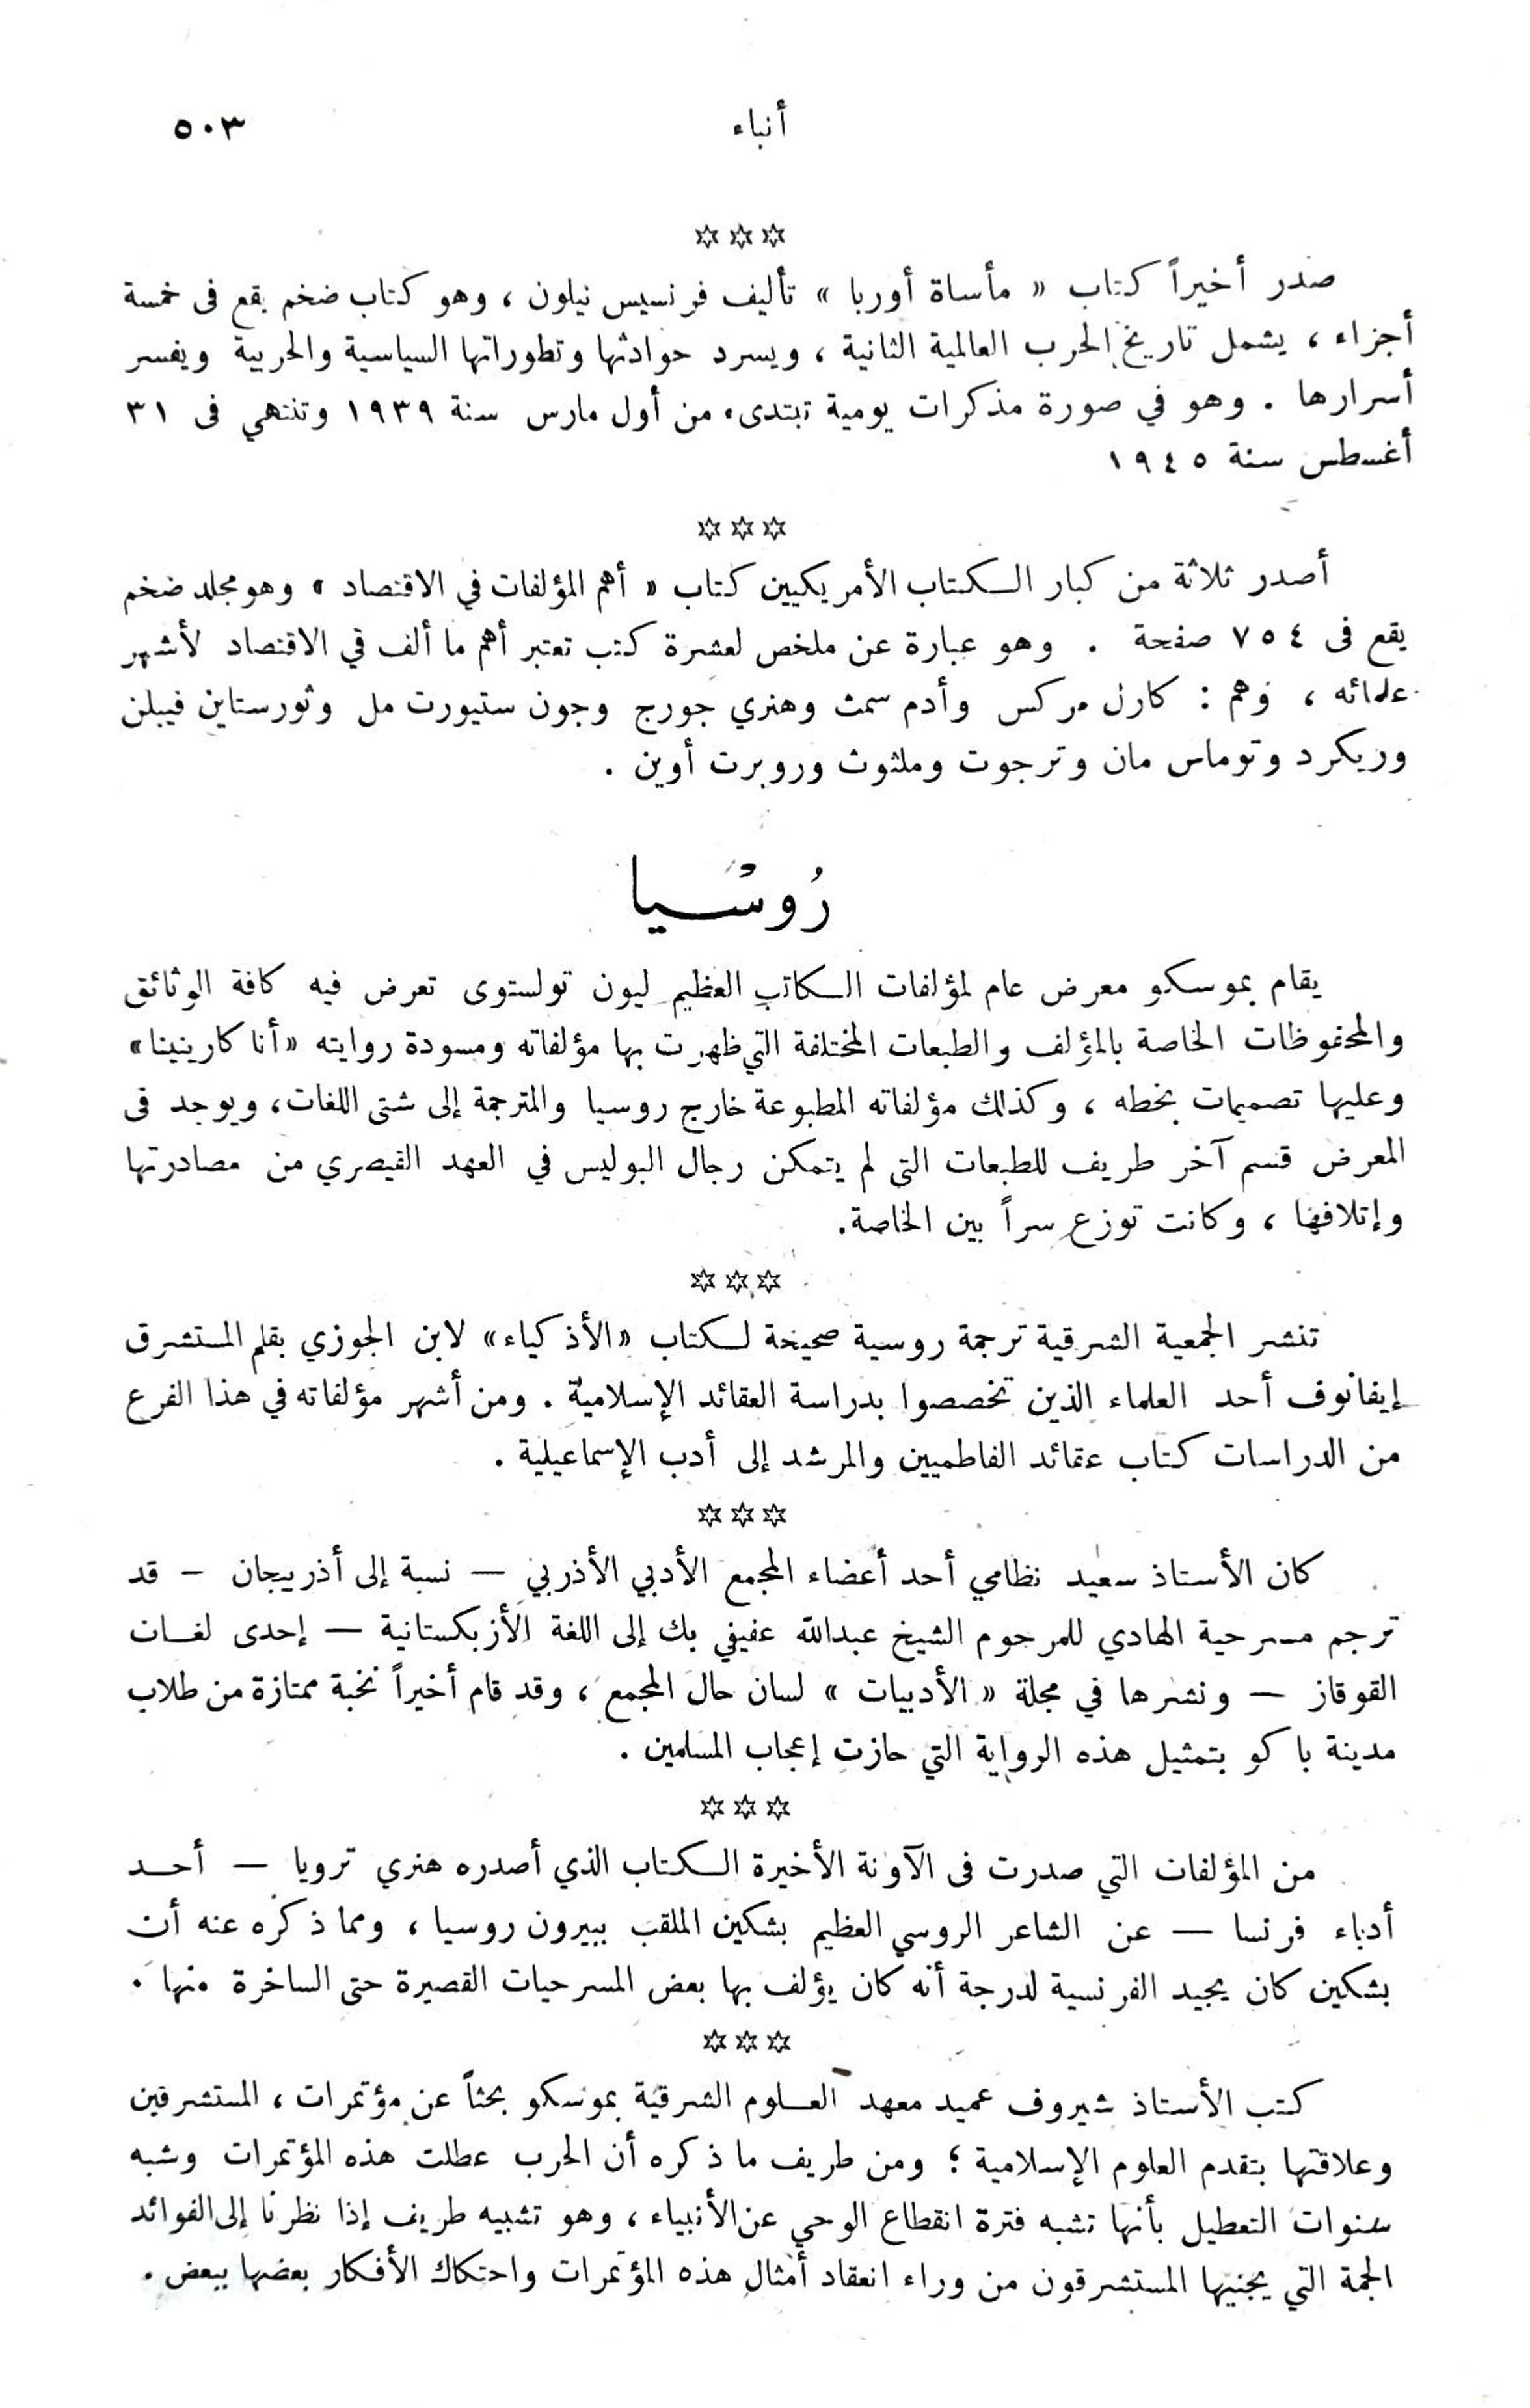 أنباء ٥٠٣
☆☆☆
صدر أخيراً كتاب « مأساة أوربا » تأليف فرنسيس نيلون ، وهو كتاب ضخم يقع فى خمسة
أجزاء ، يشمل تاريخ الحرب العالمية الثانية ، ويسرد حوادثها وتطوراتها السياسية والحربية ويفسر
أسرارها . وهو في صورة مذكرات يومية تبتدىء من أول مارس سنة ١٩٣٩ وتنتهي فى ٣١
أغسطس سنة ١٩٤٥
☆☆☆
أصدر ثلاثة من كبار الكتاب الأمريكيين كتاب « أهم المؤلفات في الاقتصاد » وهو مجلد ضخم
يقع فى ٧٥٤ صفحة . وهو عبارة عن ملخص لعشرة كتب تعتبر أهم ما ألف في الاقتصاد لأشهر
علمائه ، وهم : كارل مركس وأدم سمث وهنري جورج وجون ستيورت مل وثورستاين فيبلن
وريكرد وتوماس مان وترجوت وملثوث وروبرت أوين .
رُوسْيا
يقام بموسكو معرض عام لمؤلفات الكاتب العظيم ليون تولستوى تعرض فيه كافة الوثائق
والمحفوظات الخاصة بالمؤلف والطبعات المختلفة التي ظهرت بها مؤلفاته ومسودة روايته «أنا كارينينا»
وعليها تصميمات بخطه ، وكذلك مؤلفاته المطبوعة خارج روسيا والمترجمة إلى شتى اللغات، ويوجد فى
المعرض قسم آخر طريف للطبعات التى لم يتمكن رجال البوليس في العهد القيصري من مصادرتها
وإتلافها ، وكانت توزع سراً بين الخاصة.
☆☆☆
تنشر الجمعية الشرقية ترجمة روسية صحيحة لكتاب «الأذكياء» لابن الجوزي بقلم المستشرق
إيفانوف أحد العلماء الذين تخصصوا بدراسة العقائد الإسلامية . ومن أشهر مؤلفاته في هذا الفرع
من الدراسات كتاب عقائد الفاطميين والمرشد إلى أدب الإسماعيلية .
☆☆☆
كان الأستاذ سعيد نظامي أحد أعضاء المجمع الأدبي الأذربي — نسبة إلى أذربيجان – قد
ترجم مسرحية الهادي للمرحوم الشيخ عبدالله عفيفي بك إلى اللغة الأزبكستانية — إحدى لغات
القوقاز — ونشرها في مجلة « الأدبيات » لسان حال المجمع ، وقد قام أخيراً نخبة ممتازة من طلاب
مدينة باكو بتمثيل هذه الرواية التي حازت إعجاب المسلمين .
☆☆☆
من المؤلفات التي صدرت فى الآونة الأخيرة الكتاب الذي أصدره هنري ترويا — أحد
أدباء فرنسا — عن الشاعر الروسي العظيم بشكين الملقب ببيرون روسيا ، ومما ذكره عنه أن
بشكين كان يجيد الفرنسية لدرجة أنه كان يؤلف بها بعض المسرحيات القصيرة حتى الساخرة منها .
☆☆☆
كتب الأستاذ شيروف عميد معهد العلوم الشرقية بموسكو بحثاً عن مؤتمرات ، المستشرقين
وعلاقتها بتقدم العلوم الإسلامية ؛ ومن طريف ما ذكره أن الحرب عطلت هذه المؤتمرات وشبه
سنوات التعطيل بأنها تشبه فترة انقطاع الوحي عن الأنبياء ، وهو تشبيه طريف إذا نظرنا إلى الفوائد
الجمة التي يجنيها المستشرقون من وراء انعقاد أمثال هذه المؤتمرات واحتكاك الأفكار بعضها ببعض .